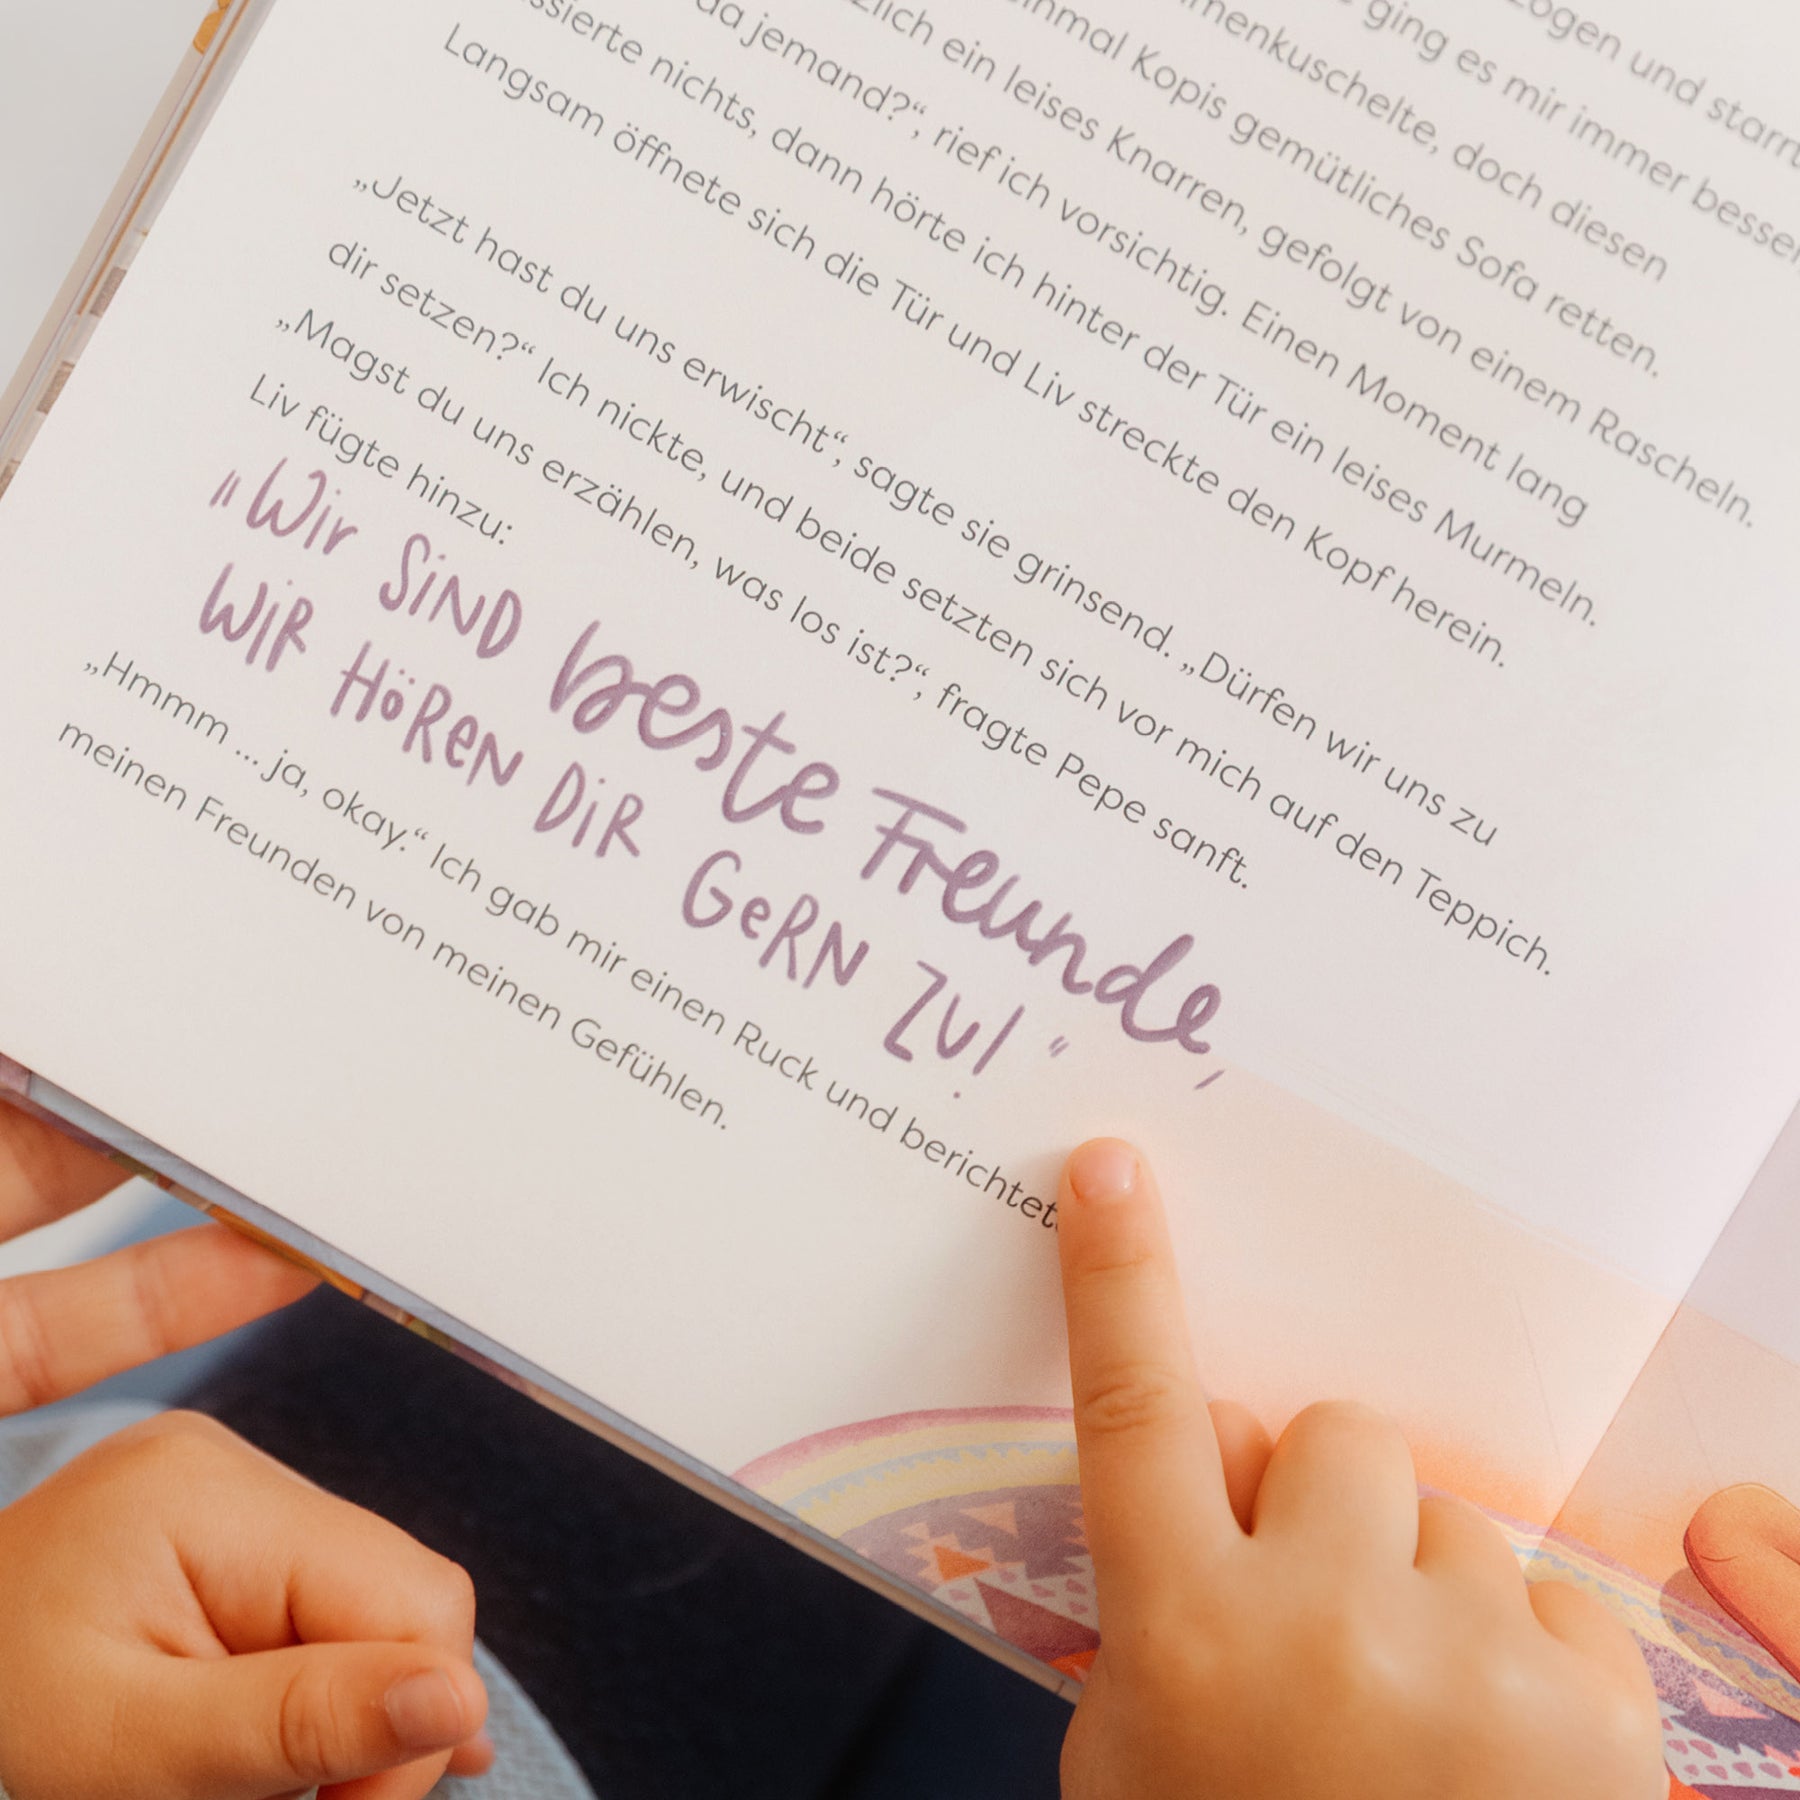 zogen und starrt
ging es mir immer besser,
menkuschelte, doch diesen
inmal Kopis gemütliches Sofa retten.
zlich ein leises Knarren, gefolgt von einem Rascheln.
da jemand?“, rief ich vorsichtig. Einen Moment lang
ssierte nichts, dann hörte ich hinter der Tür ein leises Murmeln.
Langsam öffnete sich die Tür und Liv streckte den Kopf herein.
„Jetzt hast du uns erwischt“, sagte sie grinsend. „Dürfen wir uns zu
dir setzen?“ Ich nickte, und beide setzten sich vor mich auf den Teppich.
„Magst du uns erzählen, was los ist?“, fragte Pepe sanft.
Liv fügte hinzu:
"Wir SiND beste Freunde,
WiR HÖReN DiR GeRN ZU!"
„Hmmm ... ja, okay.“ Ich gab mir einen Ruck und berichtet
meinen Freunden von meinen Gefühlen.